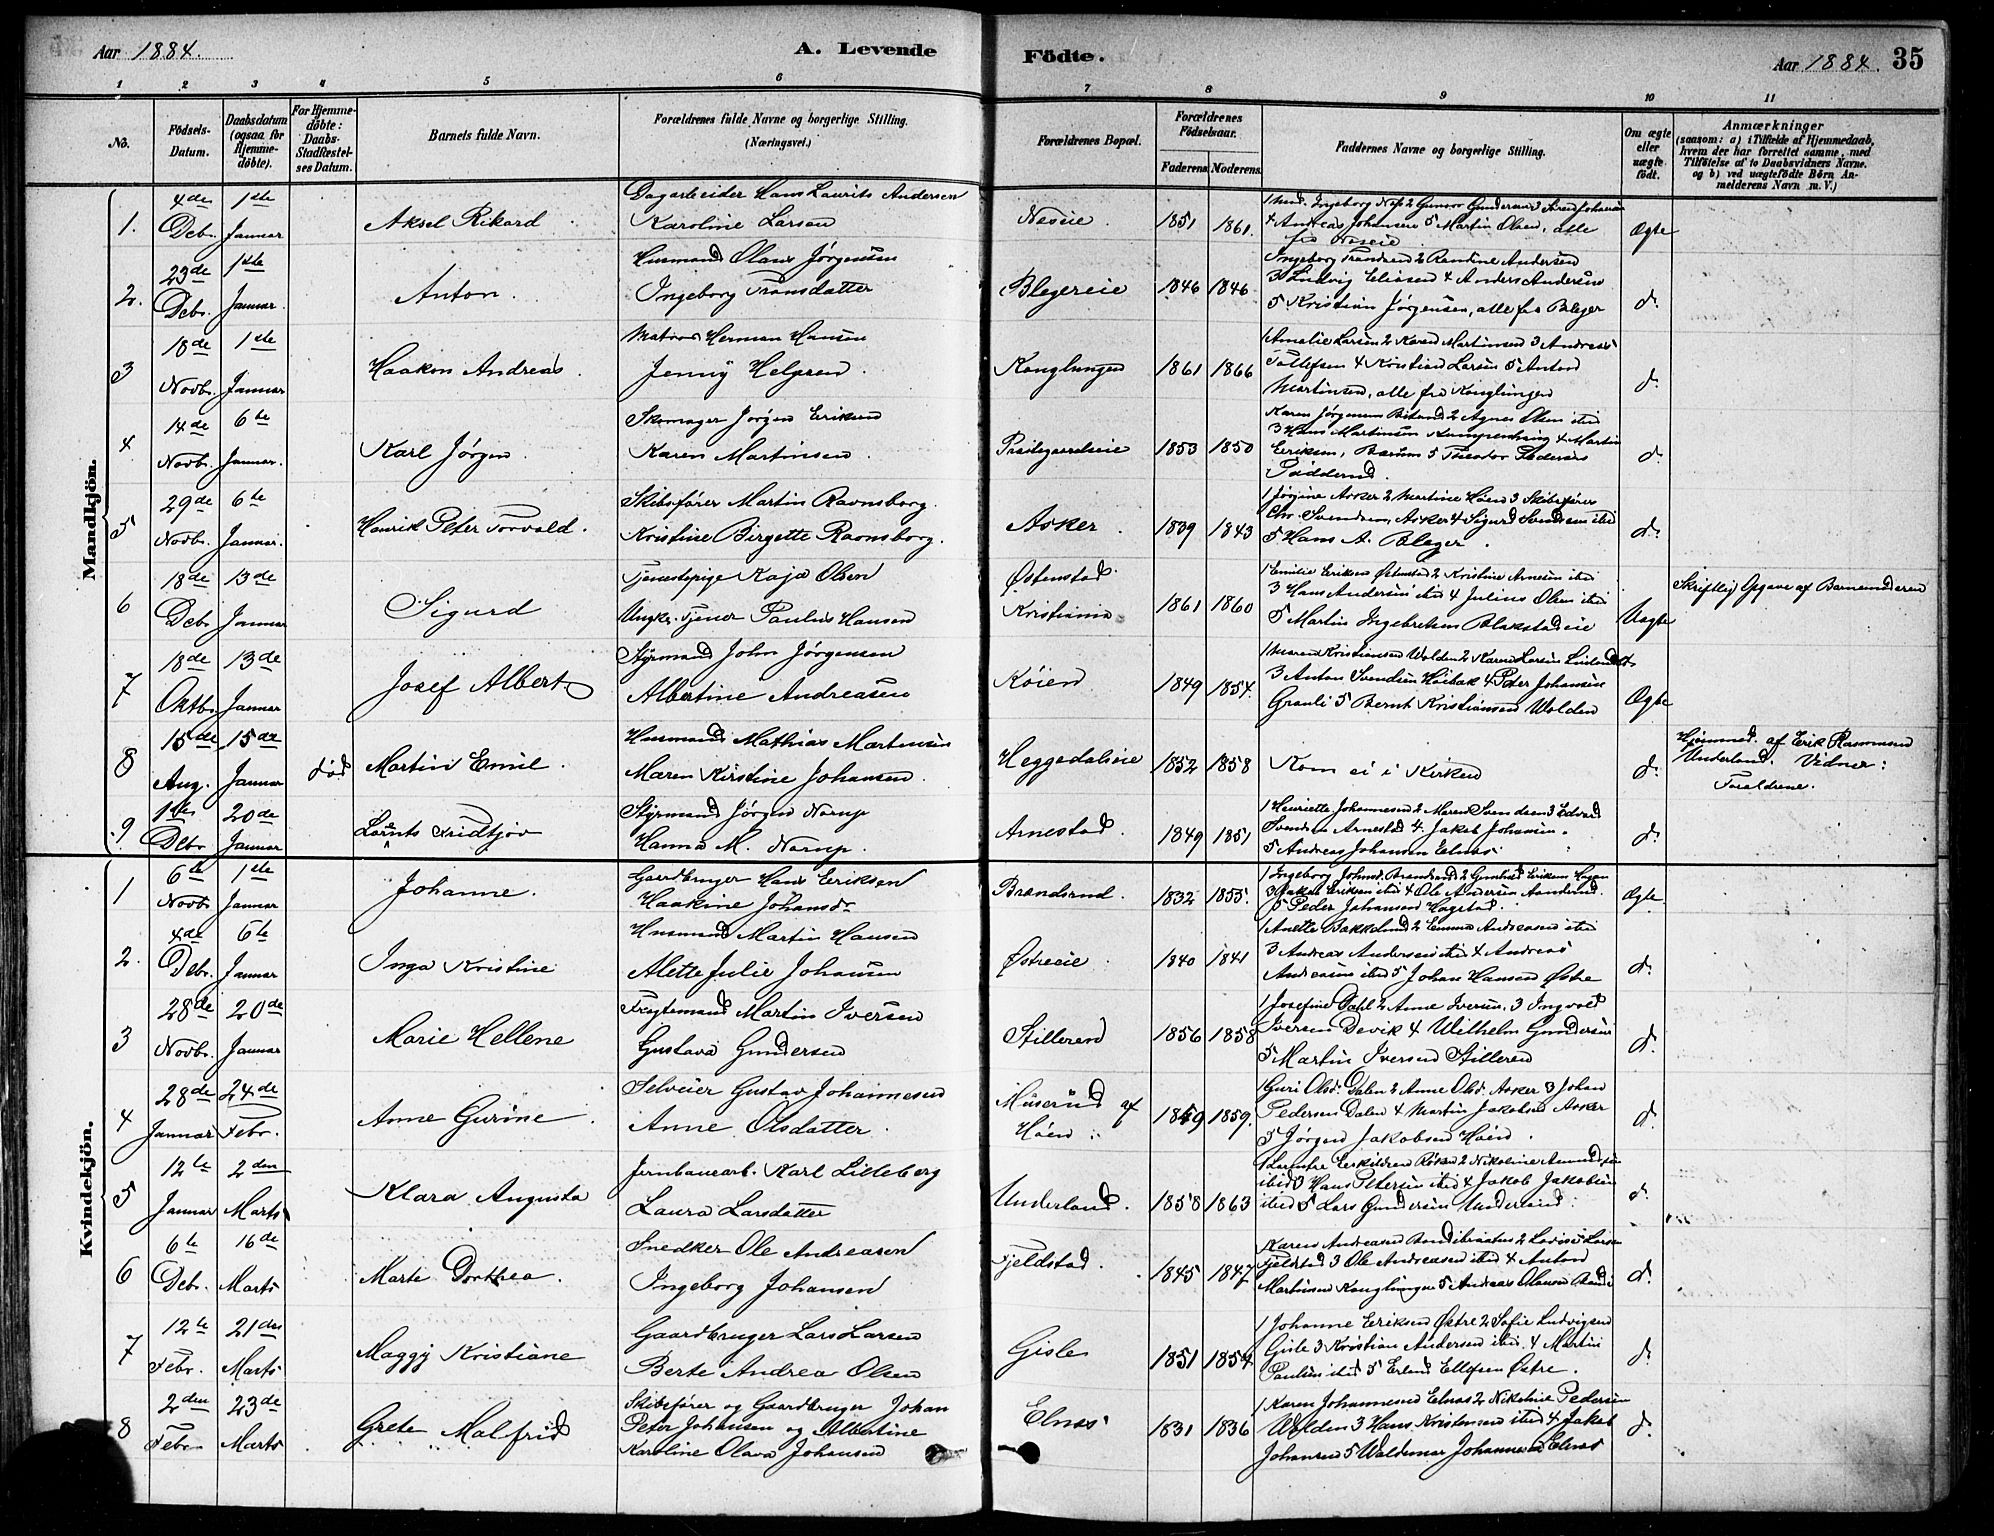 Aar 1884.
A. Levende
Födte.
Aar 1884. 35
1 2 3 4 5 6 7 8 9 10 11
No.
Födsels-Datum.
Daabsdatum (ogsaa for Hjemme-döbte).
For Hjemme-döbte: Daabs-Stadfæstelses Datum.
Barnets fulde Navn.
Forældrenes fulde Navne og borgerlige Stilling. (Næringsvei.)
Forældrenes Bopæl.
Forældrenes Födselsaar.
Faderens Moderens
Faddernes Navne og borgerlige Stilling.
Om ægte eller uægte födt.
Anmærkninger
(saasom: a) i Tilfælde af Hjemmedaab, hvem der har forrettet samme, med Tilföielse af to Daabsvidners Navne. og b) ved uægtefödte Börn Anmelderens Navn m. V.)
Mandkjön.
1. 4de Decbr. 1ste Januar Aksel Rikard
Dagarbeider Hans Laurits Andersen
Karoline Larsen
Neseie 1851 1861.
4 Andreas Johansen 5 Martin Olsen, alle
fra Neseie
Ægte
2. 23de Decbr. 1ste Januar. Anton.
Husmand Olaus Jørgensen
Ingeborg Transdatter
Blegereie 1846 1846
3 Ludvig Eliasen 4 Anders Andersen
5 Kristian Jørgensen, alle fra Bleger
d.
3 18de Novbr. 1ste Januar Haakon Andreas.
Matros Herman Hansen
Jenny Helgesen.
Konglungen 1861 1866
1 Amalie Larsen 2 Karen Martinsen 3 Andreas
Tollefsen 4 Kristian Larsen 5 Anton
Martinsen, alle fra Konglungen
d.
4 14de Novbr. 6te Januar. Karl Jørgen.
Skomager Jørgen Eriksen
Karen Martinsen.
Præstegaardseie 1853 1850
Eriksen, Bærum 5 Theodor Pedersen
d.
5 29de Novbr. 6te Januar. Henrik Peter Torvald.
Skibsfører Martin Ravnsborg.
Kristine Birgette Ravnsborg.
Asker 1839 1843
1 Jørgine Asker 2 Martine Høen 3 Skibsfører
Chr. Svendsen, Asker 4 Sigurd Svendsen ibid
5 Hans A. Bleger.
d.
6 18de Decbr. 13de Januar Sigurd
Tjenestepige Kaja Olsen
Ungk. Tjener Paulus Hansen
Østenstad
Kristiania 1861 1860
1 Emilie Eriksen Østenstad 2 Kristine Arnesen ibid
3 Hans Andersen ibid 4 Julius Olsen ibid
5 Martin Ingebretsen Blakstadeie
Uægte
Skriftlig Opgave af Barnemoderen
7 18de Oktbr. 13de Januar Josef Albert
Styrmand John Jørgensen
Albertine Andreasen
Køien 1849 1854.
3 Anton Svendsen Høibak 4 Peter Johansen
5 Bernt Kristiansen Wolden
Ægte
8 15de Aug. 15de Januar død Martin Emil.
Husmand Mathias Martinsen
Maren Kirstine Johansen.
Heggedalseie 1852 1858
Kom ei i Kirken
d.
Hjemmed. af Erik Rasmussen
Underland. Vidner:
Forældrene.
9 1ste Decbr. 20de Januar Lornts Fridtjov
Styrmand Jørgen Narup
Hanna M. Narup.
Arnestad. 1849 1851
1 Henriette Johannesen 2 Maren Svendsen 3 Edvard
Svendsen Arnestad 4. Jakob Johansen.
5 Andreas Johansen Elnæs
d.
Kvindekjön.
1 6te Novbr. 1ste Januar Johanne.
Gaardbruger Hans Eriksen
Haakine Johansdr
Brendsrud. 1832 1855.
5 Peder Johansen Hagstad.
Ægte
2. 4de Decbr. 6te Januar Inga Kristine
Husmand Martin Hansen
Alette Julie Johansen
Østreeie 1840 1841
1 Anette Bakkelund 2 Emma Andreasen ibid
3 Andreas Andersen ibid 4 Andreas
Andreasen ibid 5 Johan Hansen Østre
d.
3 28de Novbr. 20de Januar Marie Hellene
Fragtemand Martin Iversen
Gustava Gundersen
Stilleren 1856 1858
1 Josefine Dahl 2 Anne Iversen, 3 Ingvald
Iversen Devik 4 Wilhelm Gundersen
5 Martin Iversen Stilleren
d.
4 28de Januar 24de Febr. Anne Gurine
Selveier Gustav Johannesen
Anne Olsdatter.
Muserud af
Høen 1859 1859.
1 Guri Olsd. Dalen 2 Anne Olsd. Asker 3 Johan
Pedersen Dalen 4 Martin Jakobsen Asker
5 Jørgen Jakobsen Høen.
d.
5 12te Januar 2den Marts Klara Augusta
Jernbanearb. Karl Lilleberg
Laura Larsdatter
Underland. 1858 1863
ibid 3 Hans Petersen ibid 4 Jakob Jakobsen
ibid 5 Lars Gundersen Underland.
d.
6 6te Decbr. 16de Marts Marte Dorthea.
Snedker Ole Andreasen
Ingeborg Johansen
Fjeldstad. 1845 1847
Fjeldstad 3 Ole Andreasen ibid 4 Anton
Martinsen Konglungen 5 Andreas Olausen
d.
7 12te Febr. 21de Marts Maggy Kristiane
Gaardbruger Lars Larsen
Berte Andrea Olsen
Gisle 1851 1854
1 Johanne Eriksen Østre 2 Sofie Ludvigsen
Gisle 3 Kristian Andersen ibid. 4 Martin
Paulsen ibid 5 Erland Ellefsen Østre.
d.
8 2den Febr. 23de Marts Grete Malfrid
Skibsfører og Gaardbruger Johan
Peter Johansen og Albertine
Karoline Olava Johansen
Elnæs 1831 1836
1 Karen Johannesen Elnæs 2 Nikoline Pedersen
Wolden 3 Hans Kristensen ibid 4 Jakob
Johansen 5 Waldemar Johannesen Elnæs
d.